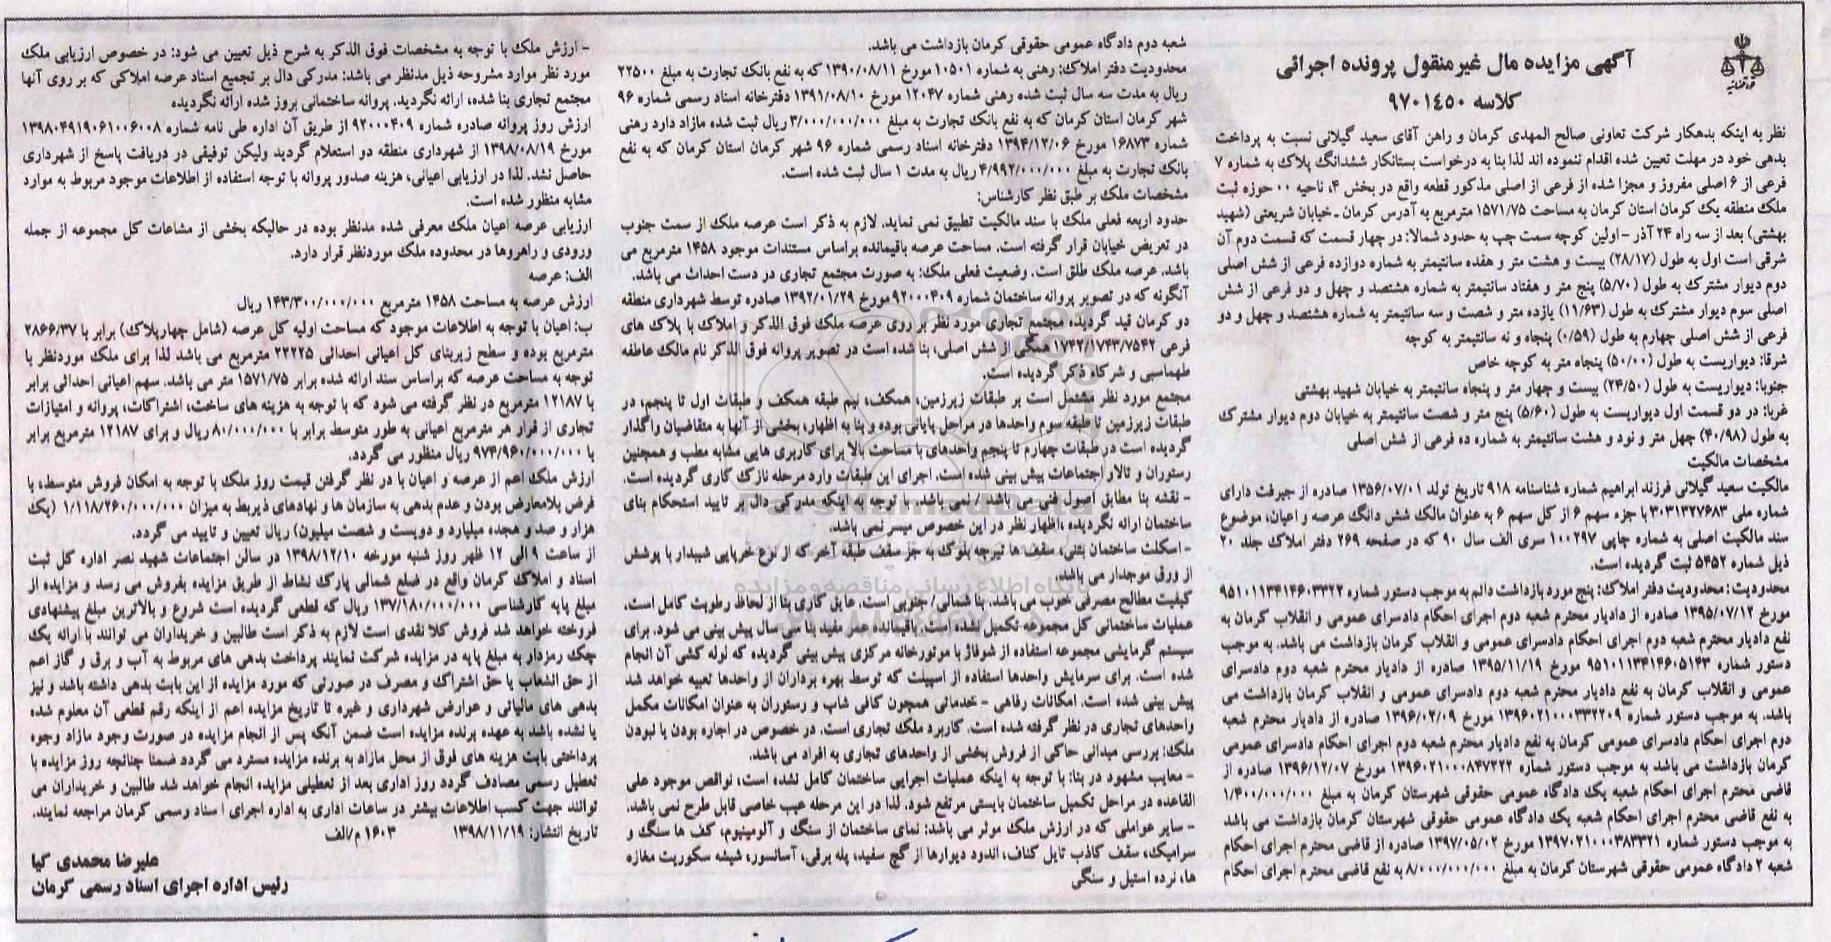 آگهی مزایده مال غیرمنقول پرونده اجرائی
کلاسه ۹۷۰۱۴۵۰
نظر به اینکه بدهکار شرکت تعاونی صالح المهدی کرمان و راهن آقای سعید گیلانی نسبت به پرداخت
بدهی خود در مهلت تعیین شده اقدام ننموده اند لذا بنا به درخواست بستانکار ششدانگ پلاک به شماره ۷
فرعی از ۶ اصلی مفروز و مجزا شده از فرعی از اصلی مذکور قطعه واقع در بخش ۴، ناحیه ۰۰ حوزه ثبت
ملک منطقه یک کرمان استان کرمان به مساحت ۱۵۷۱/۷۵ مترمربع به آدرس کرمان ـ خیابان شریعتی (شهید
بهشتی) بعد از سه راه ۲۴ آذر – اولین کوچه سمت چپ به حدود شمالا: در چهار قسمت که قسمت دوم آن
شرقی است اول به طول (۲۸/۱۷) بیست و هشت متر و هفده سانتیمتر به شماره دوازده فرعی از شش اصلی
دوم دیوار مشترک به طول (۵/۷۰) پنج متر و هفتاد سانتیمتر به شماره هشتصد و چهل و دو فرعی از شش
اصلی سوم دیوار مشترک به طول (۱۱/۶۳) یازده متر و شصت و سه سانتیمتر به شماره هشتصد و چهل و دو
فرعی از شش اصلی چهارم به طول (۰/۵۹) پنجاه و نه سانتیمتر به کوچه
شرقا: دیواریست به طول (۵۰/۰۰) پنجاه متر به کوچه خاص
جنوبا: دیواریست به طول (۲۴/۵۰) بیست و چهار متر و پنجاه سانتیمتر به خیابان شهید بهشتی
غربا: در دو قسمت اول دیواریست به طول (۵/۶۰) پنج متر و شصت سانتیمتر به خیابان دوم دیوار مشترک
به طول (۴۰/۹۸) چهل متر و نود و هشت سانتیمتر به شماره ده فرعی از شش اصلی
مشخصات مالکیت
مالکیت سعید گیلانی فرزند ابراهیم شماره شناسنامه ۹۱۸ تاریخ تولد ۱۳۵۶/۰۷/۰۱ صادره از جیرفت دارای
شماره ملی ۳۰۳۱۳۲۷۶۸۳ با جزء سهم ۶ از کل سهم ۶ به عنوان مالک شش دانگ عرصه و اعیان، موضوع
سند مالکیت اصلی به شماره چاپی ۱۰۰۲۹۷ سری الف سال ۹۰ که در صفحه ۲۶۹ دفتر املاک جلد ۲۰
ذیل شماره ۵۴۵۲ ثبت گردیده است.
محدودیت: محدودیت دفتر املاک: پنج مورد بازداشت دائم به موجب دستور شماره ۹۵۱۰۱۱۳۴۱۴۶۰۳۳۲۲
مورخ ۱۳۹۵/۰۷/۱۲ صادره از دادیار محترم شعبه دوم اجرای احکام دادسرای عمومی و انقلاب کرمان به
نفع دادیار محترم شعبه دوم اجرای احکام دادسرای عمومی و انقلاب کرمان بازداشت می باشد. به موجب
دستور شماره ۹۵۱۰۱۱۳۴۱۴۶۰۵۱۴۳ مورخ ۱۳۹۵/۱۱/۱۹ صادره از دادیار محترم شعبه دوم دادسرای
عمومی و انقلاب کرمان به نفع دادیار محترم شعبه دوم دادسرای عمومی و انقلاب کرمان بازداشت می
باشد. به موجب دستور شماره ۱۳۹۶۰۲۱۰۰۰۳۳۲۲۰۹ مورخ ۱۳۹۶/۰۲/۰۹ صادره از دادیار محترم شعبه
دوم اجرای احکام دادسرای عمومی کرمان به نفع دادیار محترم شعبه دوم اجرای احکام دادسرای عمومی
کرمان بازداشت می باشد به موجب دستور شماره ۱۳۹۶۰۲۱۰۰۰۸۴۷۲۲۲ مورخ ۱۳۹۶/۱۲/۰۷ صادره از
قاضی محترم اجرای احکام شعبه یک دادگاه عمومی حقوقی شهرستان کرمان به مبلغ ۱/۴۰۰/۰۰۰/۰۰۰
به نفع قاضی محترم اجرای احکام شعبه یک دادگاه عمومی حقوقی شهرستان کرمان بازداشت می باشد
به موجب دستور شماره ۱۳۹۷۰۲۱۰۰۰۳۸۳۳۲۱ مورخ ۱۳۹۷/۰۵/۰۲ صادره از قاضی محترم اجرای احکام
شعبه ۲ دادگاه عمومی حقوقی شهرستان کرمان به مبلغ ۸/۰۰۰/۰۰۰/۰۰۰ به نفع قاضی محترم اجرای احکام
شعبه دوم دادگاه عمومی حقوقی کرمان بازداشت می باشد.
محدودیت دفتر املاک: رهنی به شماره ۱۰۵۰۱ مورخ ۱۳۹۰/۰۸/۱۱ که به نفع بانک تجارت به مبلغ ۲۲۵۰۰
ریال به مدت سه سال ثبت شده رهنی شماره ۱۲۰۴۷ مورخ ۱۳۹۱/۰۸/۱۰ دفترخانه اسناد رسمی شماره ۹۶
شهر کرمان استان کرمان که به نفع بانک تجارت به مبلغ ۳/۰۰۰/۰۰۰/۰۰۰ ریال ثبت شده مازاد دارد رهنی
شماره ۱۶۸۷۳ مورخ ۱۳۹۴/۱۲/۰۶ دفترخانه اسناد رسمی شماره ۹۶ شهر کرمان استان کرمان که به نفع
بانک تجارت به مبلغ ۴/۹۹۲/۰۰۰/۰۰۰ ریال به مدت ۱ سال ثبت شده است.
مشخصات ملک بر طبق نظر کارشناس:
حدود اربعه فعلی ملک با سند مالکیت تطبیق نمی نماید. لازم به ذکر است عرصه ملک از سمت جنوب
در تعریض خیابان قرار گرفته است. مساحت عرصه باقیمانده براساس مستندات موجود ۱۴۵۸ مترمربع می
باشد. عرصه ملک طلق است. وضعیت فعلی ملک: به صورت مجتمع تجاری در دست احداث می باشد.
آنگونه که در تصویر پروانه ساختمان شماره ۹۲۰۰۰۴۰۹ مورخ ۱۳۹۲/۰۱/۲۹ صادره توسط شهرداری منطقه
دو کرمان قید گردیده مجتمع تجاری مورد نظر بر روی عرصه ملک فوق الذکر و املاک با پلاک های
فرعی ۱۷۴۲/۱۷۴۳/۷۵۴۲ همگی از شش اصلی، بنا شده است در تصویر پروانه فوق الذکر نام مالک عاطفه
طهماسبی و شرکاء ذکر گردیده است.
مجتمع مورد نظر مشتمل است بر طبقات زیرزمین، همکف، نیم طبقه همکف و طبقات اول تا پنجم، در
طبقات زیرزمین تا طبقه سوم واحدها در مراحل پایانی بوده و بنا به اظهار، بخشی از آنها به متقاضیان واگذار
گردیده است در طبقات چهارم تا پنجم واحدهای با مساحت بالا برای کاربری هایی مشابه مطب و همچنین
رستوران و تالار اجتماعات پیش بینی شده است. اجرای این طبقات وارد مرحله نازک کاری گردیده است.
– نقشه بنا مطابق اصول فنی می باشد / نمی باشد. با توجه به اینکه مدرکی دال بر تایید استحکام بنای
ساختمان ارائه نگردیده، اظهار نظر در این خصوص میسر نمی باشد.
– اسکلت ساختمان بتنی، سقف ها تیرچه بلوک به جز سقف طبقه آخر که از نوع خرپایی شیبدار با پوشش
از ورق موجدار می باشد.
کیفیت مطالح مصرفی خوب می باشد. بنا شمالی/ جنوبی است. عایق کاری بنا از لحاظ رطوبت کامل است.
عملیات ساختمانی کل مجموعه تکمیل نشده است. باقیمانده عمر مفید بنا سی سال پیش بینی می شود. برای
سیستم گرمایشی مجموعه استفاده از شوفاژ با موتورخانه مرکزی پیش بینی گردیده که لوله کشی آن انجام
شده است. برای سرمایش واحدها استفاده از اسپیلت که توسط بهره برداران از واحدها تعبیه خواهد شد
پیش بینی شده است. امکانات رفاهی – خدماتی همچون کافی شاپ و رستوران به عنوان امکانات مکمل
واحدهای تجاری در نظر گرفته شده است. کاربرد ملک تجاری است. در خصوص در اجاره بودن یا نبودن
ملک: بررسی میدانی حاکی از فروش بخشی از واحدهای تجاری به افراد می باشد.
– معایب مشهود در بنا: با توجه به اینکه عملیات اجرایی ساختمان کامل نشده است، نواقص موجود علی
القاعده در مراحل تکمیل ساختمان بایستی مرتفع شود. لذا در این مرحله عیب خاصی قابل طرح نمی باشد.
– سایر عواملی که در ارزش ملک موثر می باشد: نمای ساختمان از سنگ و آلومینیوم، کف ها سنگ و
سرامیک، سقف کاذب تایل کناف، اندود دیوارها از گچ سفید، پله برقی، آسانسور، شیشه سکوریت مغازه
ها، نرده استیل و سنگی
– ارزش ملک با توجه به مشخصات فوق الذکر به شرح ذیل تعیین می شود: در خصوص ارزیابی ملک
مورد نظر موارد مشروحه ذیل مدنظر می باشد: مدرکی دال بر تجمیع اسناد عرصه املاکی که بر روی آنها
مجتمع تجاری بنا شده، ارائه نگردید. پروانه ساختمانی بروز شده ارائه نگردیده
ارزش روز پروانه صادره شماره ۹۲۰۰۰۴۰۹ از طریق آن اداره طی نامه شماره ۱۳۹۸۰۴۹۱۹۰۶۱۰۰۶۰۰۸
مورخ ۱۳۹۸/۰۸/۱۹ از شهرداری منطقه دو استعلام گردید ولیکن توفیقی در دریافت پاسخ از شهرداری
حاصل نشد. لذا در ارزیابی اعیانی، هزینه صدور پروانه با توجه استفاده از اطلاعات موجود مربوط به موارد
مشابه منظور شده است.
ارزیابی عرصه اعیان ملک معرفی شده مدنظر بوده در حالیکه بخشی از مشاعات کل مجموعه از جمله
ورودی و راهروها در محدوده ملک موردنظر قرار دارد.
الف: عرصه
ارزش عرصه به مساحت ۱۴۵۸ مترمربع ۱۴۳/۳۰۰/۰۰۰/۰۰۰ ریال
ب: اعیان با توجه به اطلاعات موجود که مساحت اولیه کل عرصه (شامل چهارپلاک) برابر با ۲۸۶۶/۳۷
مترمربع بوده و سطح زیربنای کل اعیانی احداثی ۲۲۲۲۵ مترمربع می باشد لذا برای ملک موردنظر با
توجه به مساحت عرصه که براساس سند ارائه شده برابر ۱۵۷۱/۷۵ متر می باشد. سهم اعیانی احداثی برابر
با ۱۲۱۸۷ مترمربع در نظر گرفته می شود که با توجه به هزینه های ساخت، اشتراکات، پروانه و امتیازات
تجاری از قرار هر مترمربع اعیانی به طور متوسط برابر با ۸۰/۰۰۰/۰۰۰ ریال و برای ۱۲۱۸۷ مترمربع برابر
با ۹۷۴/۹۶۰/۰۰۰/۰۰۰ ریال منظور می گردد.
ارزش ملک اعم از عرصه و اعیان با در نظر گرفتن قیمت روز ملک با توجه به امکان فروش متوسط، با
فرض بلامعارض بودن و عدم بدهی به سازمان ها و نهادهای ذیربط به میزان ۱/۱۱۸/۲۶۰/۰۰۰/۰۰۰ (یک
هزار و صد و هجده میلیارد و دویست و شصت میلیون) ریال تعیین و تایید می گردد.
از ساعت ۹ الی ۱۲ ظهر روز شنبه مورخه ۱۳۹۸/۱۲/۱۰ در سالن اجتماعات شهید نصر اداره کل ثبت
اسناد و املاک کرمان واقع در ضلع شمالی پارک نشاط از طریق مزایده بفروش می رسد و مزایده از
مبلغ پایه کارشناسی ۱۳۷/۱۸۰/۰۰۰/۰۰۰ ریال که قطعی گردیده است شروع و بالاترین مبلغ پیشنهادی
فروخته خواهد شد فروش کلا نقدی است لازم به ذکر است طالبین و خریداران می توانند با ارائه یک
چک رمزدار به مبلغ پایه در مزایده شرکت نمایند پرداخت بدهی های مربوط به آب و برق و گاز اعم
از حق انشعاب یا حق اشتراک و مصرف در صورتی که مورد مزایده از این بابت بدهی داشته باشد و نیز
بدهی های مالیاتی و عوارض شهرداری و غیره تا تاریخ مزایده اعم از اینکه رقم قطعی آن معلوم شده
یا نشده باشد به عهده برنده مزایده است ضمن آنکه پس از انجام مزایده در صورت وجود مازاد وجوه
پرداختی بابت هزینه های فوق از محل مازاد به برنده مزایده مسترد می گردد ضمنا چنانچه روز مزایده با
تعطیل رسمی مصادف گردد روز اداری بعد از تعطیلی مزایده انجام خواهد شد طالبین و خریداران می
توانند جهت کسب اطلاعات بیشتر در ساعات اداری به اداره اجرای اسناد رسمی کرمان مراجعه نمایند.
تاریخ انتشار: ۱۳۹۸/۱۱/۱۹ ۱۶۰۳ م/الف
علیرضا محمدی کیا
رئیس اداره اجرای اسناد رسمی کرمان